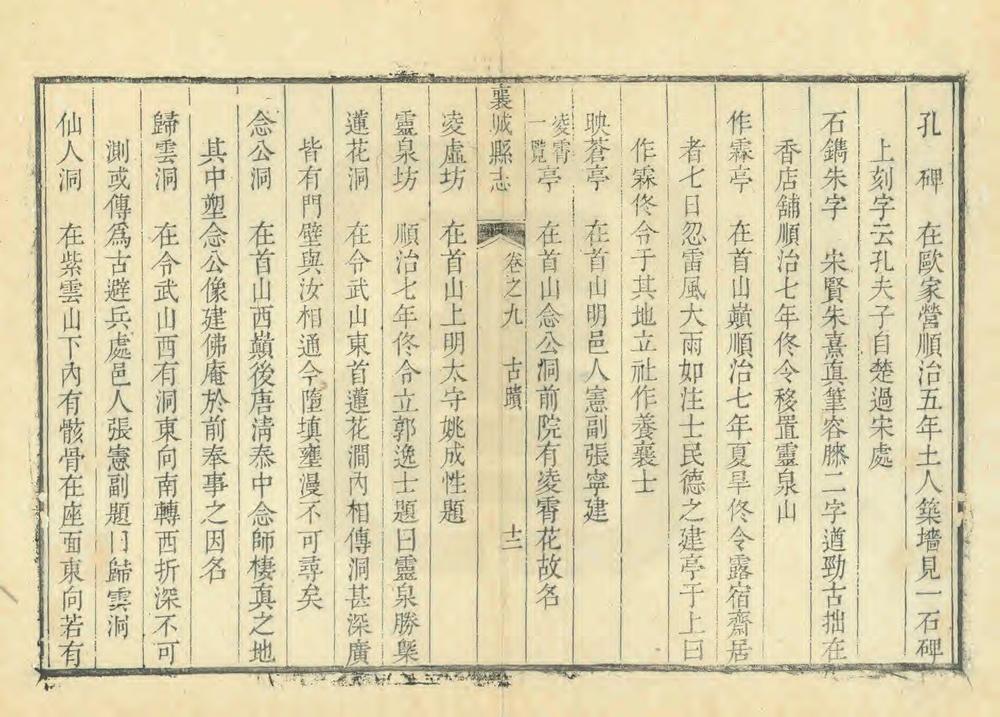 孔碑　在歐家營順治五年土人築墻見一石碑
上刻字云孔夫子自楚過宋處
石鐫朱字　宋賢朱熹真筆容膝二字遒勁古拙在
香店舖順治七年佟令移置靈泉山
作霖亭　在首山巔順治七年夏旱佟令露宿齋居
者七日忽雷風大雨如注士民德之建亭于上曰
作霖佟令于其地立社作養襄士
映蒼亭　在首山明邑人憲副張寧建
凌霄一覽亭　在首山念公洞前院有凌霄花故名
襄城縣志　卷之九　古蹟　十二
凌虛坊　在首山上明太守姚成性題
靈泉坊　順治七年佟令立郭逸士題曰靈泉勝槩
蓮花洞　在令武山東首蓮花澗內相傳洞甚深廣
皆有門壁與汝相通今墮填壅漫不可尋矣
念公洞　在首山西巔後唐淸泰中念師棲真之地
其中塑念公像建佛庵於前奉事之因名
歸雲洞　在令武山西有洞東向南轉西折深不可
測或傳爲古避兵處邑人張憲副題曰歸雲洞
仙人洞　在紫雲山下內有骸骨在座面東向若有